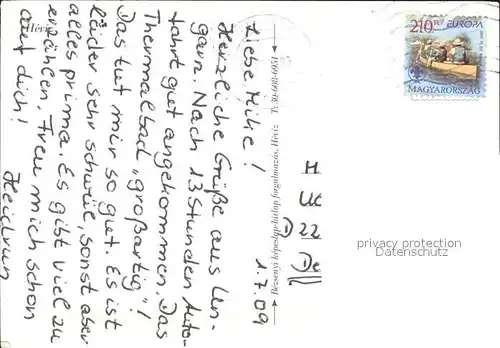 Hévíz
Liebe Heike!
Herzliche Grüße aus Un-
garn. Nach 13 Stunden Auto-
fahrt gut angekommen. Das
Thermalbad „großartig"!
Das tut mir so gut. Es ist
leider sehr schwül, sonst aber
alles prima. Es gibt viel zu
erzählen. Freu mich schon
auf dich!
Heidrun
Bézsenyi képeslap-hírlap forgalmazás, Héviz T: 30-608-6951
210Ft EUROPA
MAGYARORSZÁG
H
D 22
De
1.7.09
privacy protection
Datenschutz